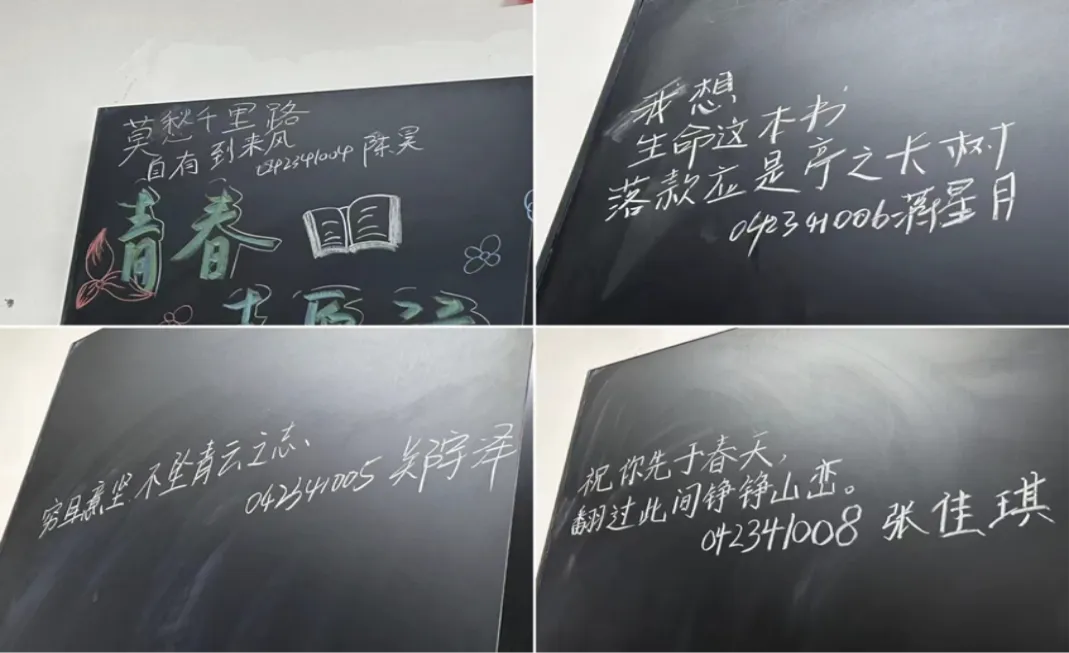 莫愁千里路
自有到来风
042341004 陈昊
青春
我想,
生命这本书
落款应是亭之长树
042341006 蒋星月
穷且亦坚,不坠青云之志、
042341005 郑宇泽
祝你先于春天,
翻过此间铮铮山峦。
042341008 张佳琪